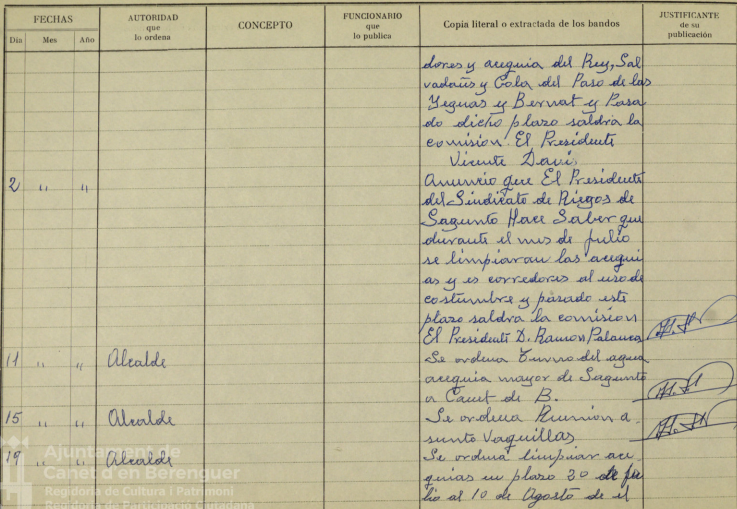 FECHAS
AUTORIDAD
que
lo ordena
CONCEPTO
FUNCIONARIO
que
lo publica
Copia literal o extractada de los bandos
JUSTIFICANTE
de su
publicación
Dia Mes Año
dores y acequia del Rey, Sal
vadañs y Cola del Paso de las
Yeguas y Bernat y Pasa
do dicho plazo saldra la
comision El Presidente
Vicente Davis
2 " " Anuncio que El Presidente
del Sindicato de Riegos de
Sagunto Hace Saber que
durante el mes de julio
se limpiaran las acequi
as y es corredores al uso de
costumbre y pasado este
plazo saldra la comision
El Presidente D. Ramon Palanca
11 " " Alcalde Se ordena Turno del agua
acequia mayor de Sagunto
a Canet de B.
15 " " Alcalde Se ordena Reunion a
sunto Vaquillas
19 " " Alcalde Se ordena limpiar ace
quias en plazo 20 de ju
lio al 10 de Agosto de el
Ajuntament de
Canet d'en Berenguer
Regidoria de Cultura i Patrimoni
Regidoria de Participació Ciutadana